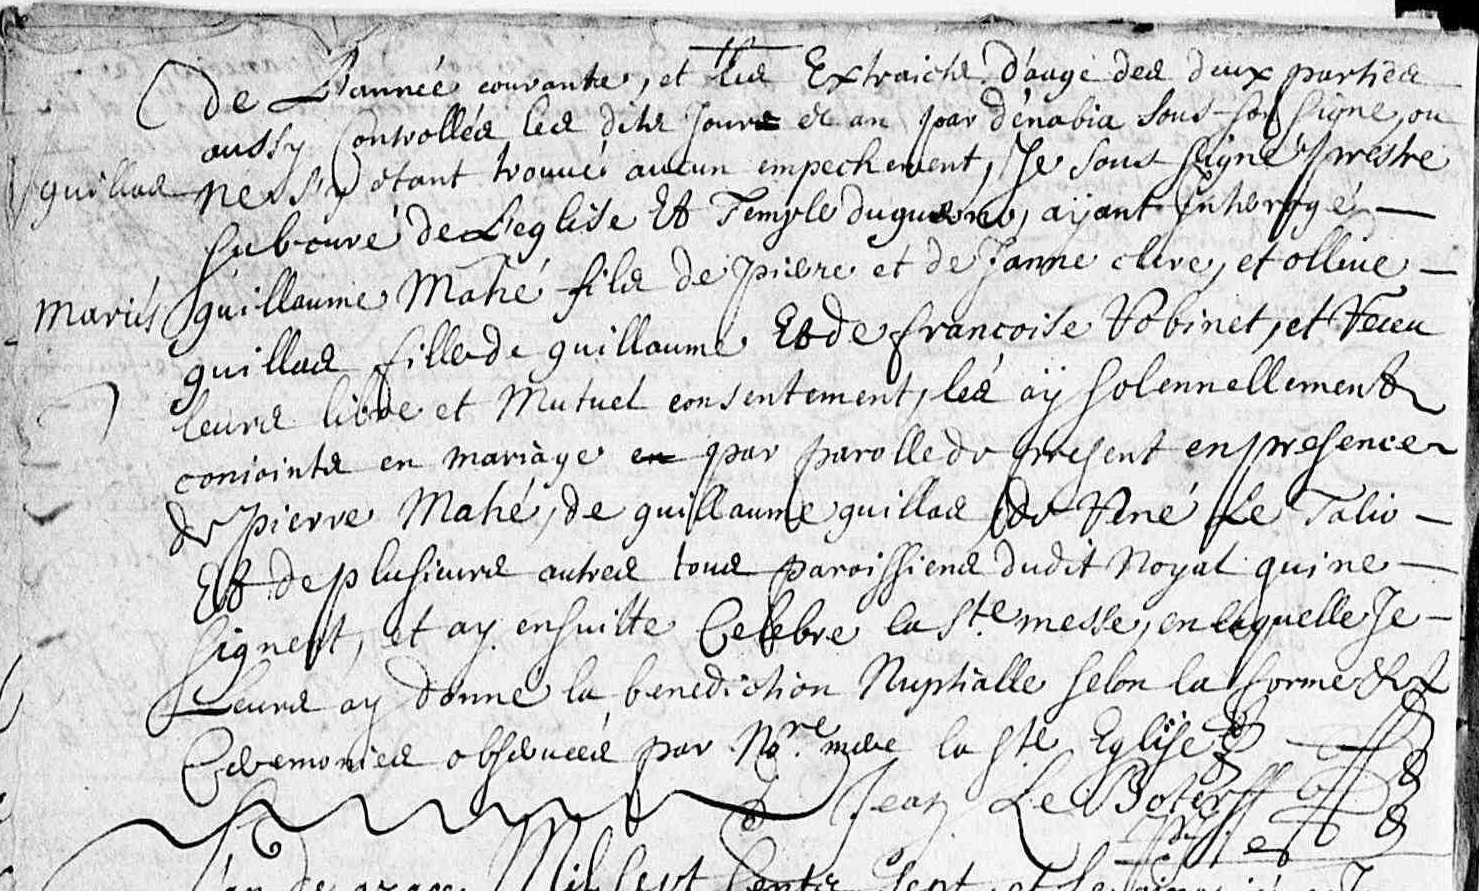 de L'année courante, et les Extraicts d'aage des deux parties
aussy Controllés les dits Jours et an par dénabia sous son signe, ou
guillas ne s'y étant trouvé aucun empechement, Je sous signé prestre
subcuré de L'eglise Et Temple du guerno, aÿant Interogé
mariés guillaume Mahé fils de pierre et de Janne clere, et ollive
guillas fille de guillaume Et de francoise Robinet, et Receu
leurs libre et Mutuel consentement, les aÿ solennellement
conjoints en mariage par parolle de present en presence
de pierre Mahé, de guillaume guillas de René Le Talio
Et de plusieurs autres tous paroissiens dudit Noyal qui ne
signent, et ay ensuitte Celebre la Ste messe, en laquelle Je
Leurs ay donne la benediction Nuptialle selon la forme et
Ceremonies observées par Nre mere la Ste Eglise
Jean Le Boterff
ptre
l'an de grace Mil sept Cents sept et